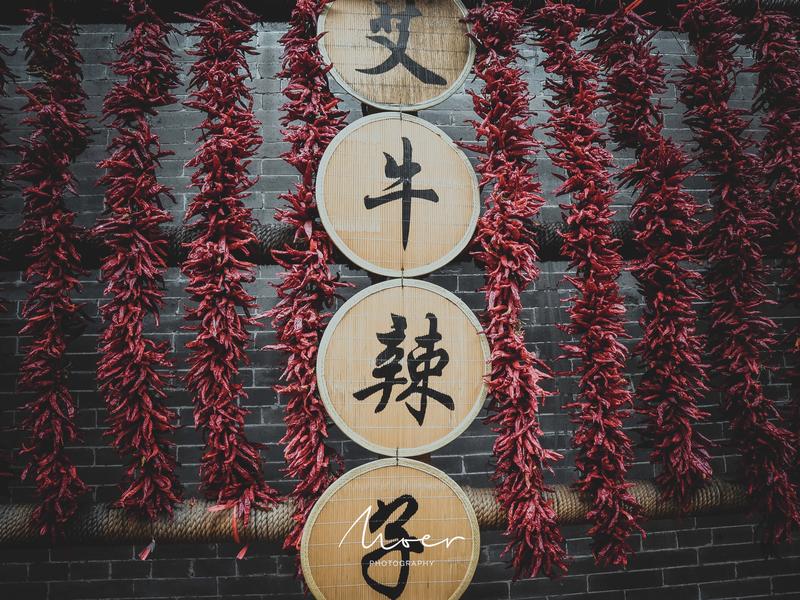 艾
牛
辣
子
Moer
PHOTOGRAPHY